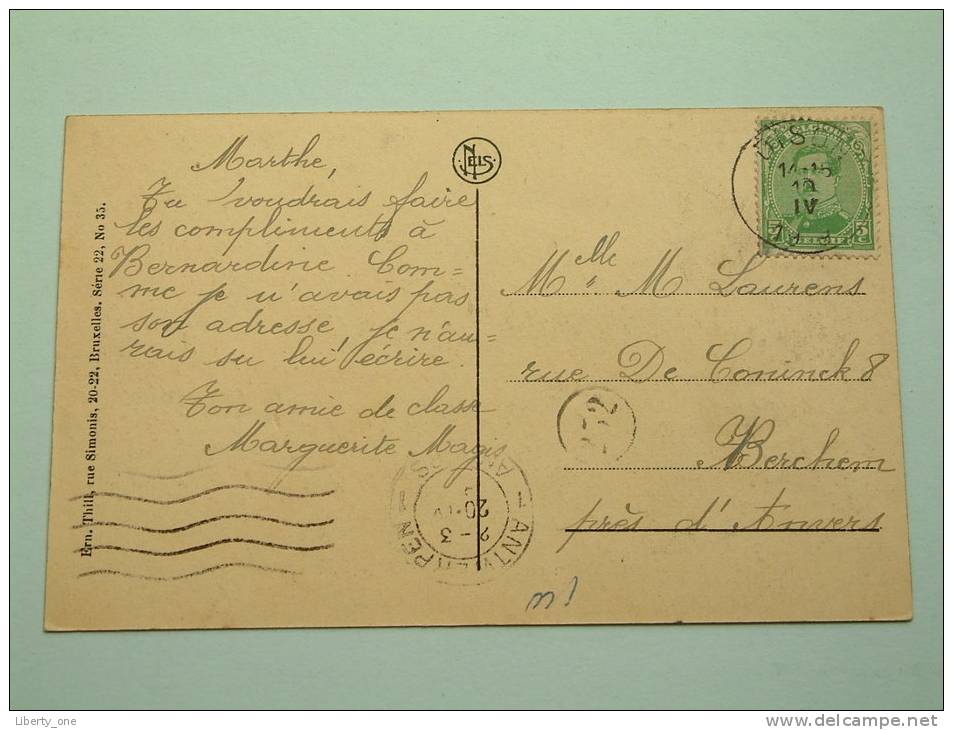 Marthe,
Tu voudrais faire
les compliments à
Bernardine. Com=
me je n'avais pas
son adresse, je n'au=
rais su lui écrire.
Ton amie de classe
Marguerite Magis
Ern. Thill, rue Simonis, 20-22, Bruxelles. Série 22, No 35.
NELS
Melle M Laurens
rue De Coninck 8
Berchem
près d'Anvers
14-15
19
IV
5 5
C
BELGIË
252
ANTWERPEN
2-3
20·IV
Liberty_one
www.delcampe.net